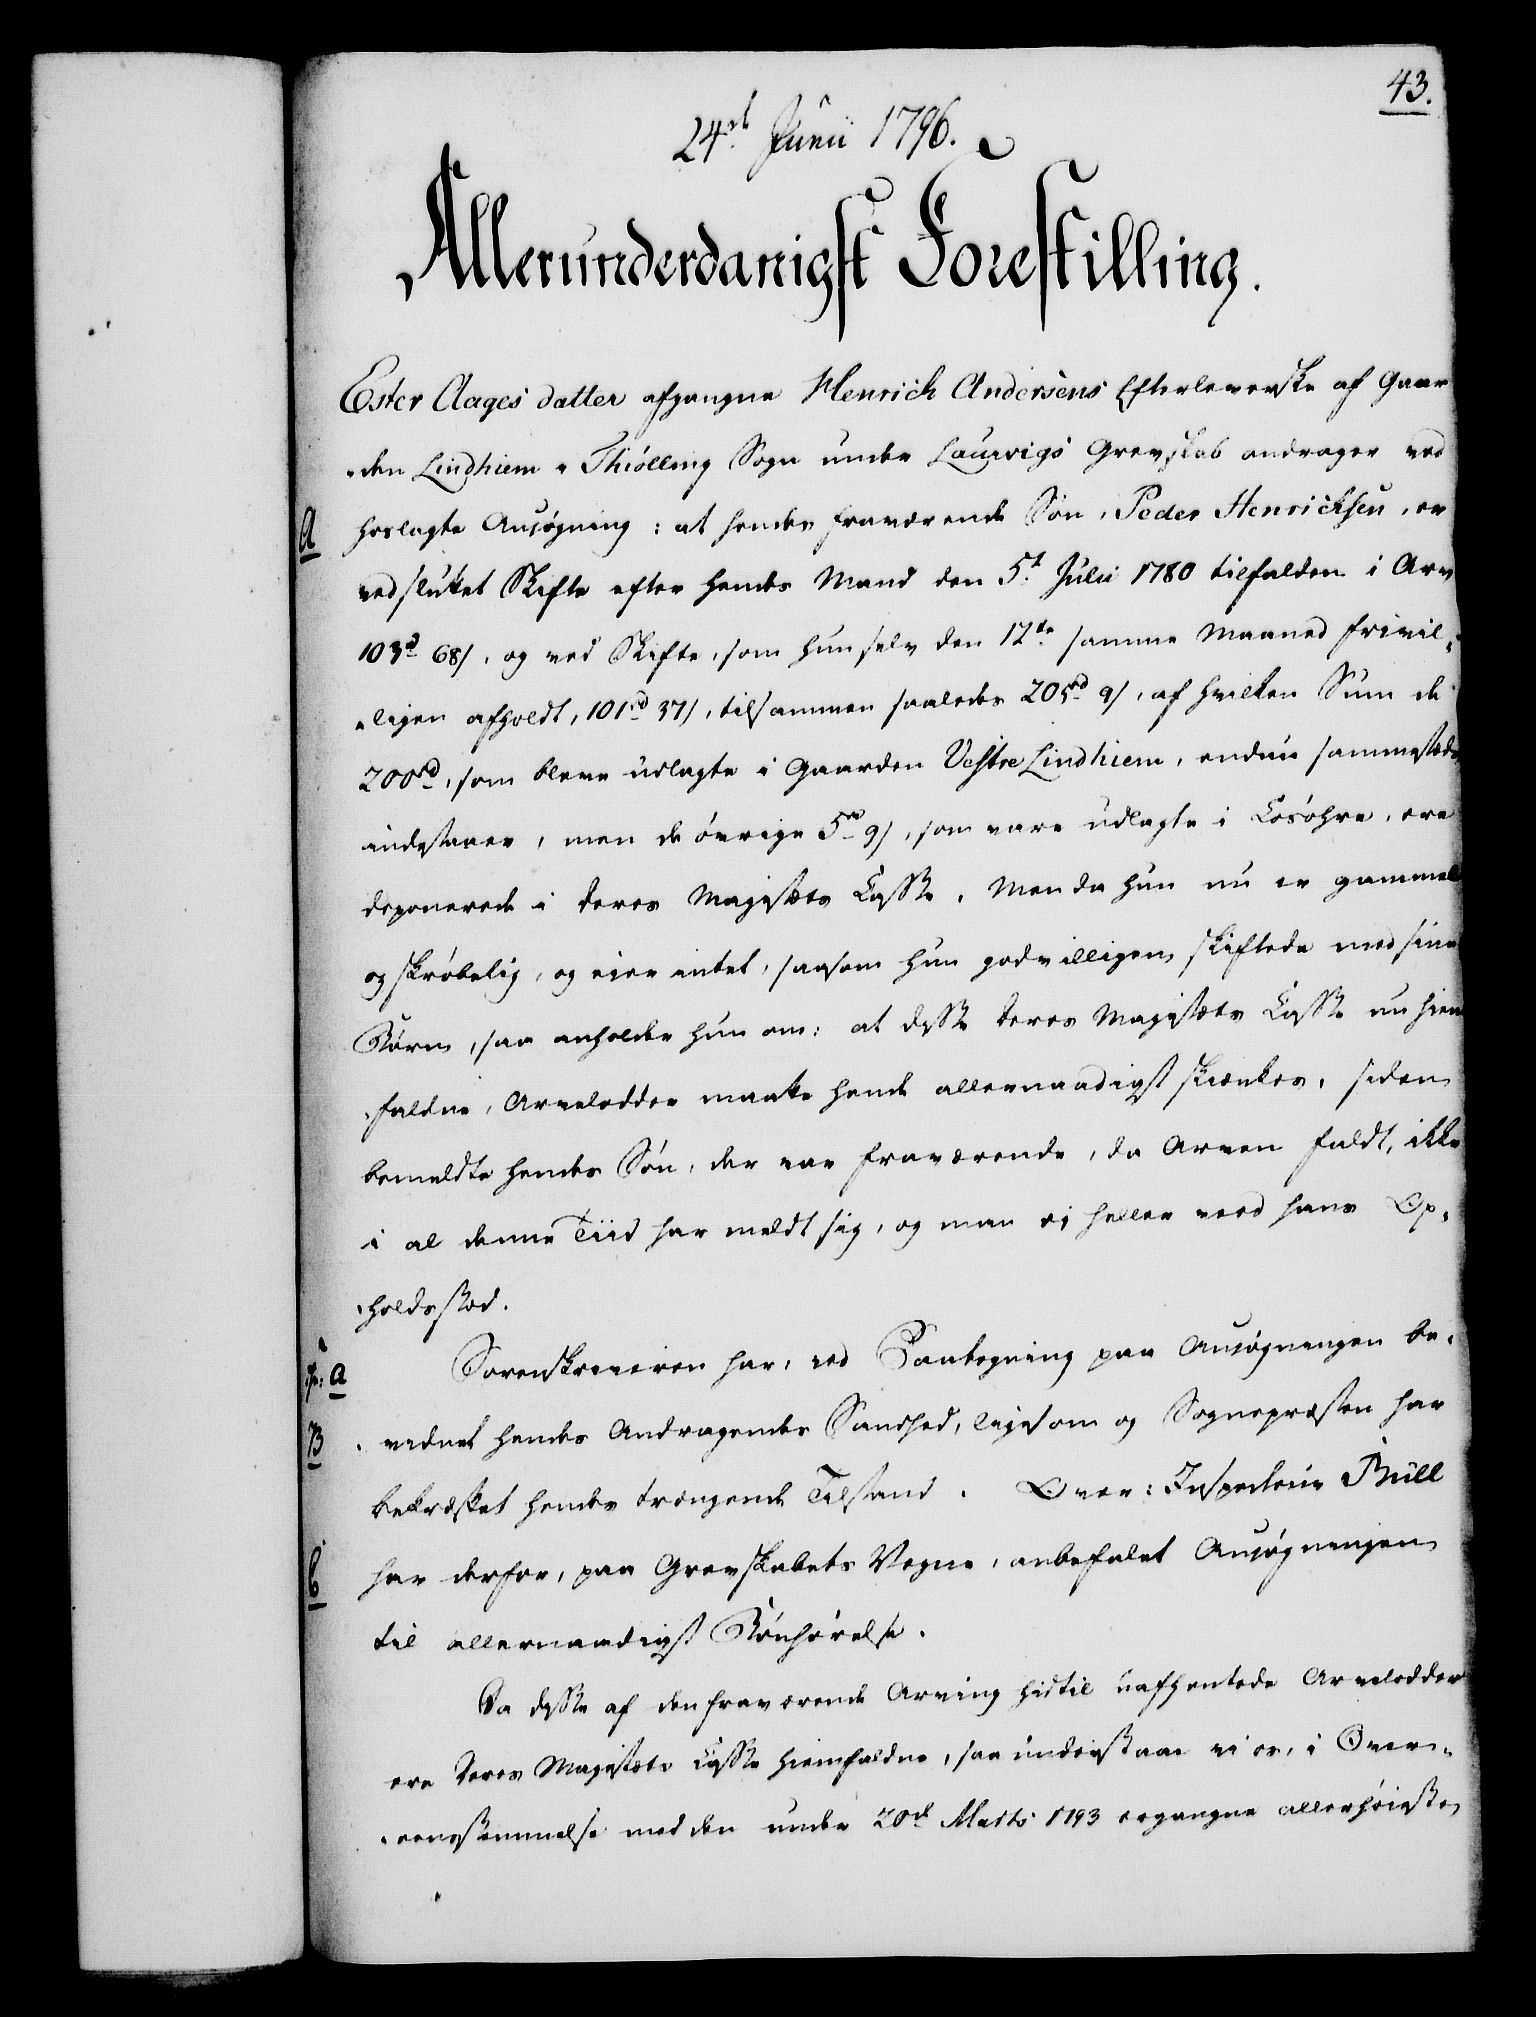 43.
24de Junii 1796.
Allerunderdanigst Forestilling.
Ester Aages datter afgangne Henrich Andersens Efterleverske af Gaar-
-den Lindhiem i Thiølling Sogn under Laurvigs Grevskab andrager ved
A hoslagte Ansøgning: at hendes fraværende Søn, Peder Henrichsen, er
ved sluttet Skifte efter hendes Mand den 5t Julii 1780 tilfalden i Arv
103rd 68s, og ved Skifte, som hun selv den 12te samme Maaned frivil-
-ligen afholdt, 101rd 37s, tilsammen saaledes 205rd 9s, af hvilken Sum de
200rd, som bleve udlagte i Gaarden Vestre Lindhiem, endnu sammestæds
indestaaer, men de øvrige 5rd 9s, som vare udlagte i Løsøhre, ere
deponerede i Deres Majestæts Casse. Men da hun nu er gammel
og skrøbelig, og eier intet, saasom hun godvilligen skiftede med sine
Børn, saa anholder hun om: at disse Deres Majestæts Casse nu hiem
-faldne Arvelodder maatte hende allernaadigst skienkes, siden
bemeldte hendes Søn, der var fraværende, da Arven faldt, ikke
i al denne Tiid har meldt sig, og man ej heller veed hans Op-
-holdsstæd.
a Sorenskriveren har, ved Paategning paa Ansøgningen be-
B -vidnet hendes Andragendes Sandhed, ligesom og Sognepræsten har
bekræftet hendes trængende Tilstand. Over-Inspecteur Büll
C har derfor, paa Grevskabets Vegne, anbefalet Ansøgningen
til allernaadigst Bønhørelse.
Da disse af den fraværende Arving hidtil uafhentede Arvelodder
ere Deres Majestæts Casse hiemfaldne, saa understaae vi os, i Over-
-eensstemmelse med den under 20de Marts 1793 ergangne allerhøieste